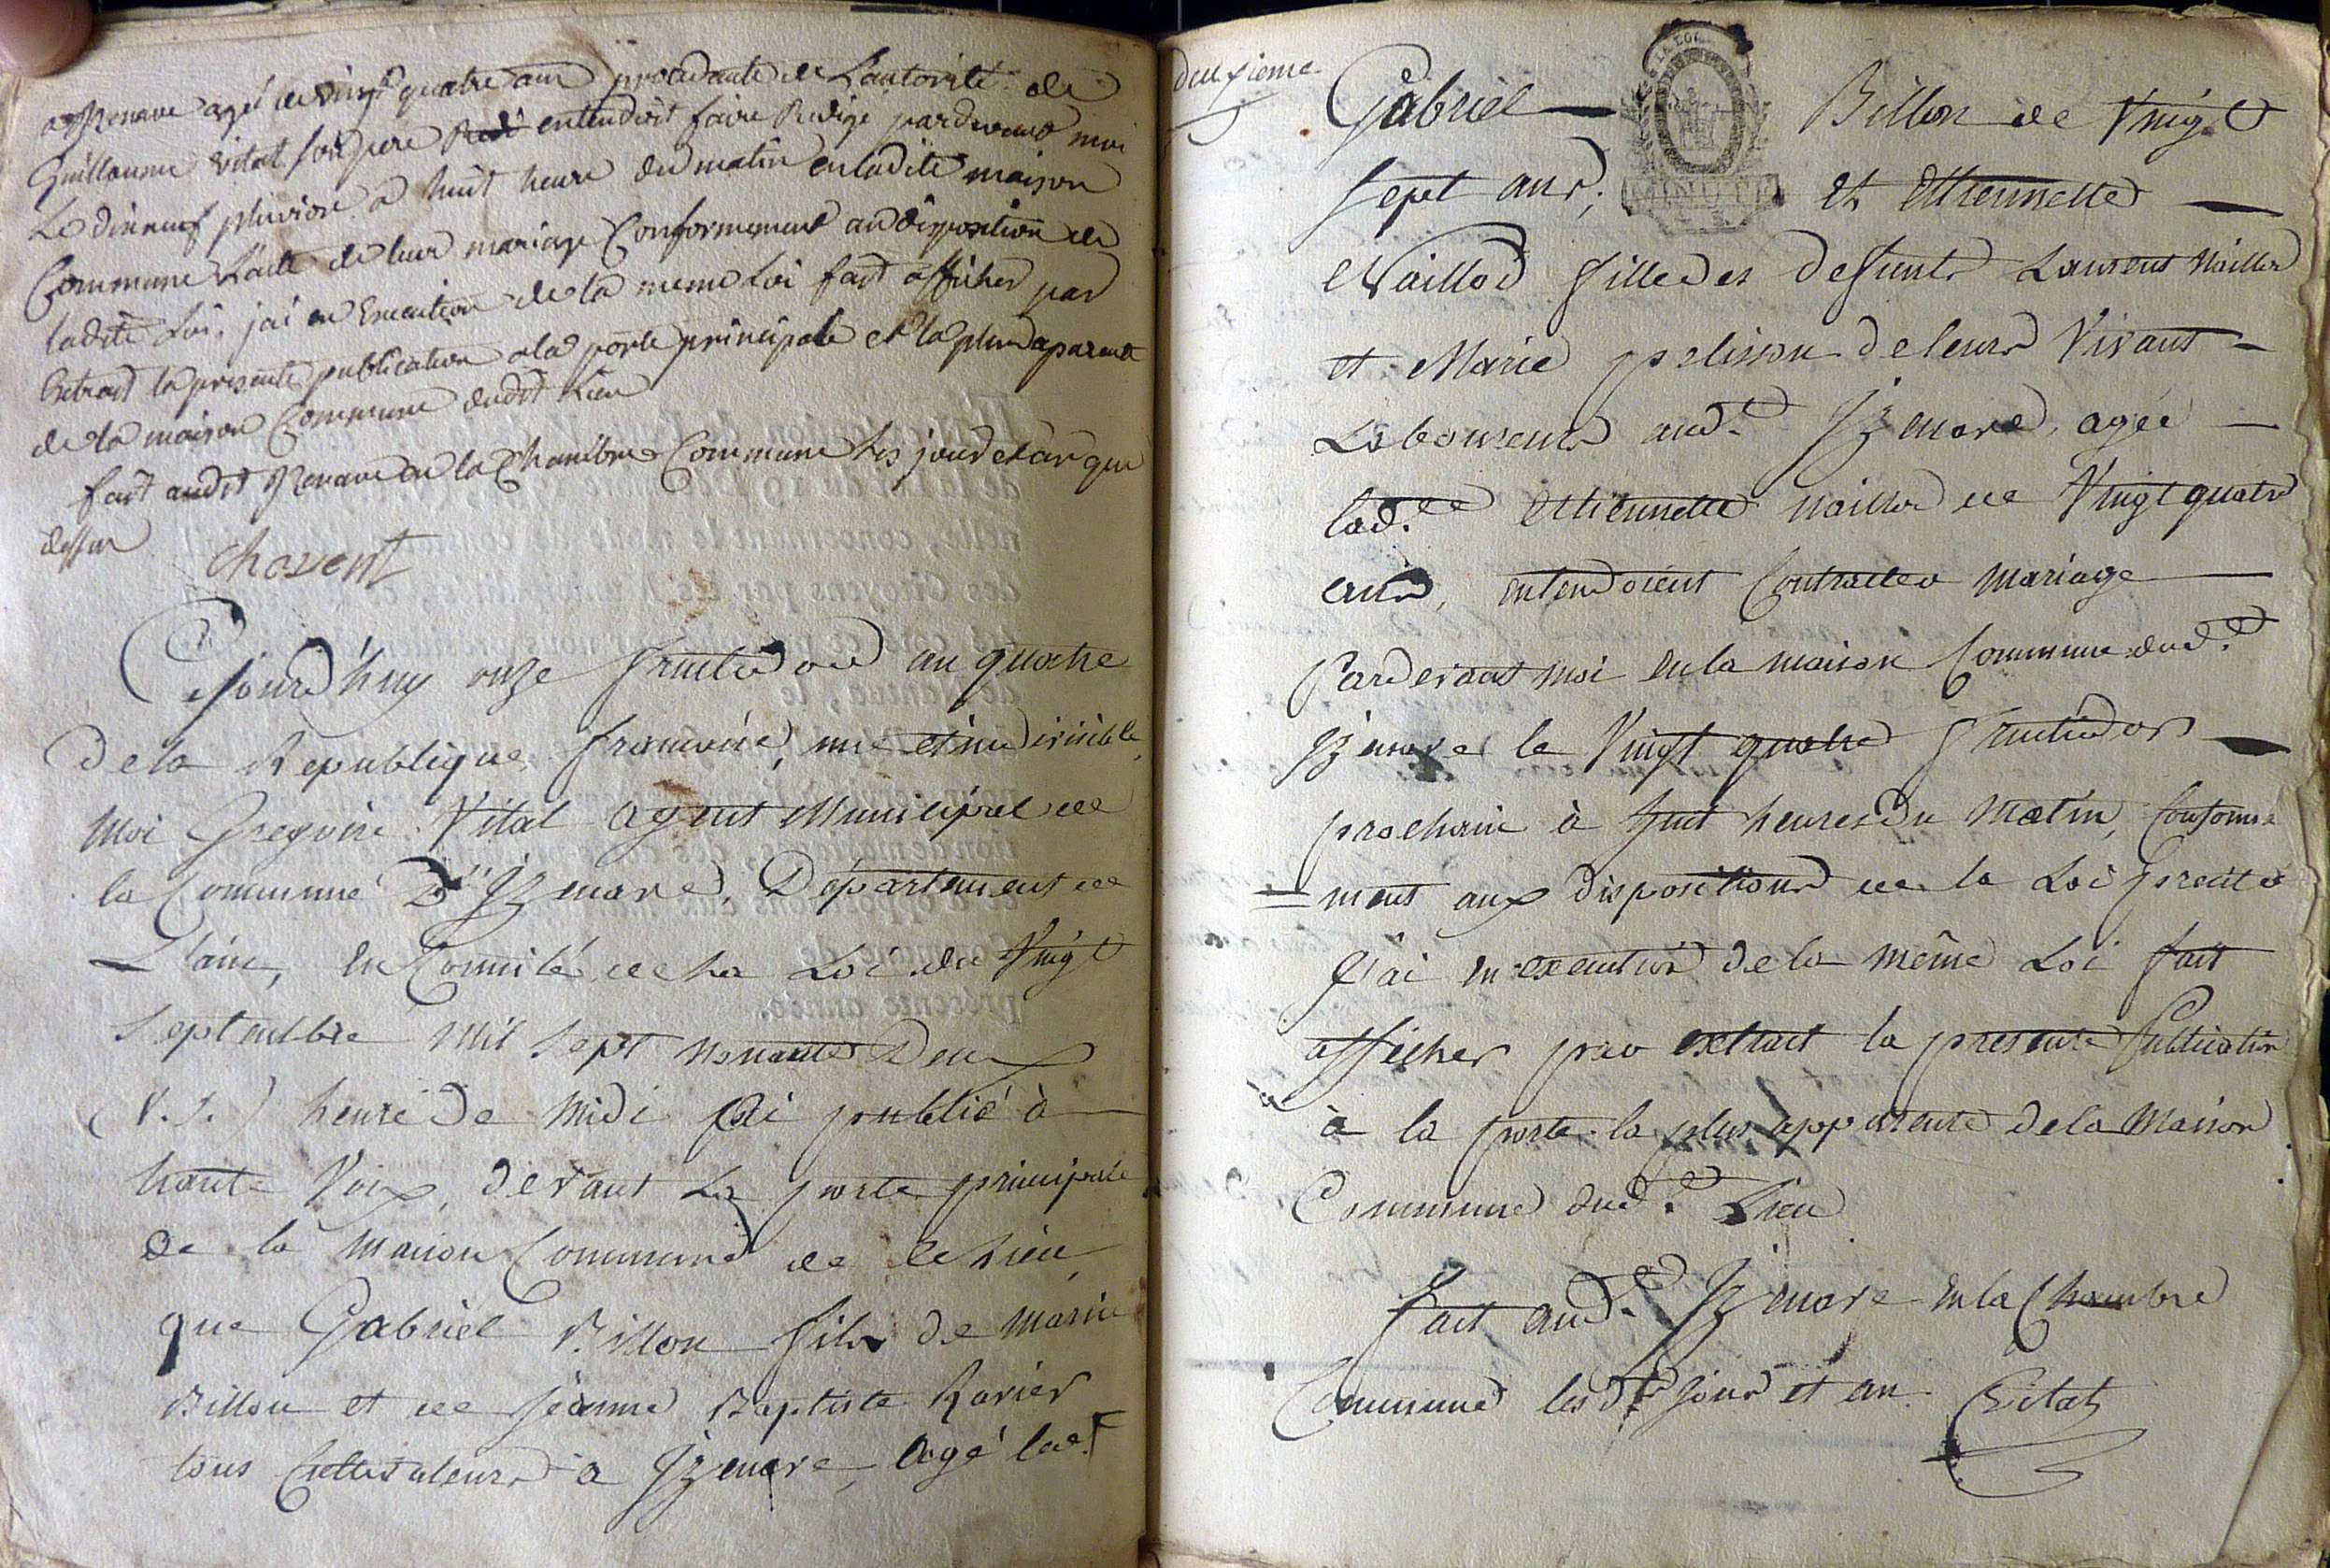 a Izenave agé de vingt quatre ans procedante de L'autorité de
Guillaume Vital son pere entendoit faire Redigé pardevant moi
Le dixneuf pluviose a huit heure du matin en ladite maison
Commune L'acte de leur mariage Conformement au disposition de
ladite Loi, j'ai en Execution de la meme Loi fait afficher par
Extrait la presente publication a la porte principale et la plus aparente
de la maison Commune dudit Lieu
fait audit Izenave en la Chambre Commune les jour et an que
dessus
Chavent
Cejourd'huy onze fructidor an quatre
de la Republique francoise, une et indivisible,
Moi Gregoire Vital agent Municipal de
la Commune D'Izenave, Département de
L'ain, en Conformité de la Loi du Vingt
Septembre Mil Sept Nonante Deux
(V.S.) heure de Midi j'ai publié à
haute Voix, devant La porte principale
de la Maison Commune de ce Lieu,
que Gabriel Billon fils de Marin
Billon et de Jeanne Baptiste Ravier
tous Cultivateurs a Izenave, agé led.t
deuxieme
Gabriel Billon de Vingt
LA LOI
Sept ans; et Ettiennette
MINUTE
Naillod fille des defunts Laurent Naillod
et Marie pelisson de leurs Vivants
Laboureurs aud.t Izenave, agée
lad.te Ettiennette Naillod de Vingt quatre
ans, entendoient Contracter Mariage
Pardevant Moi en la maison Commune dud.t
Izenave le Vingt quatre fructidor
prochain à huit heures du Matin, Conforme
=ment aux dispositions de la Loi precitée
J'ai en execution de la même Loi fait
afficher par extrait la presente Publication
à la porte la plus apparente de la Maison
Commune dud.t Lieu
Fait aud.t Izenave en la Chambre
Commune lesd.ts Jour et an. Vital